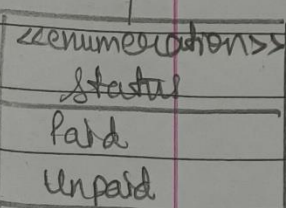 <<enumeration>>
Status
Paid
Unpaid